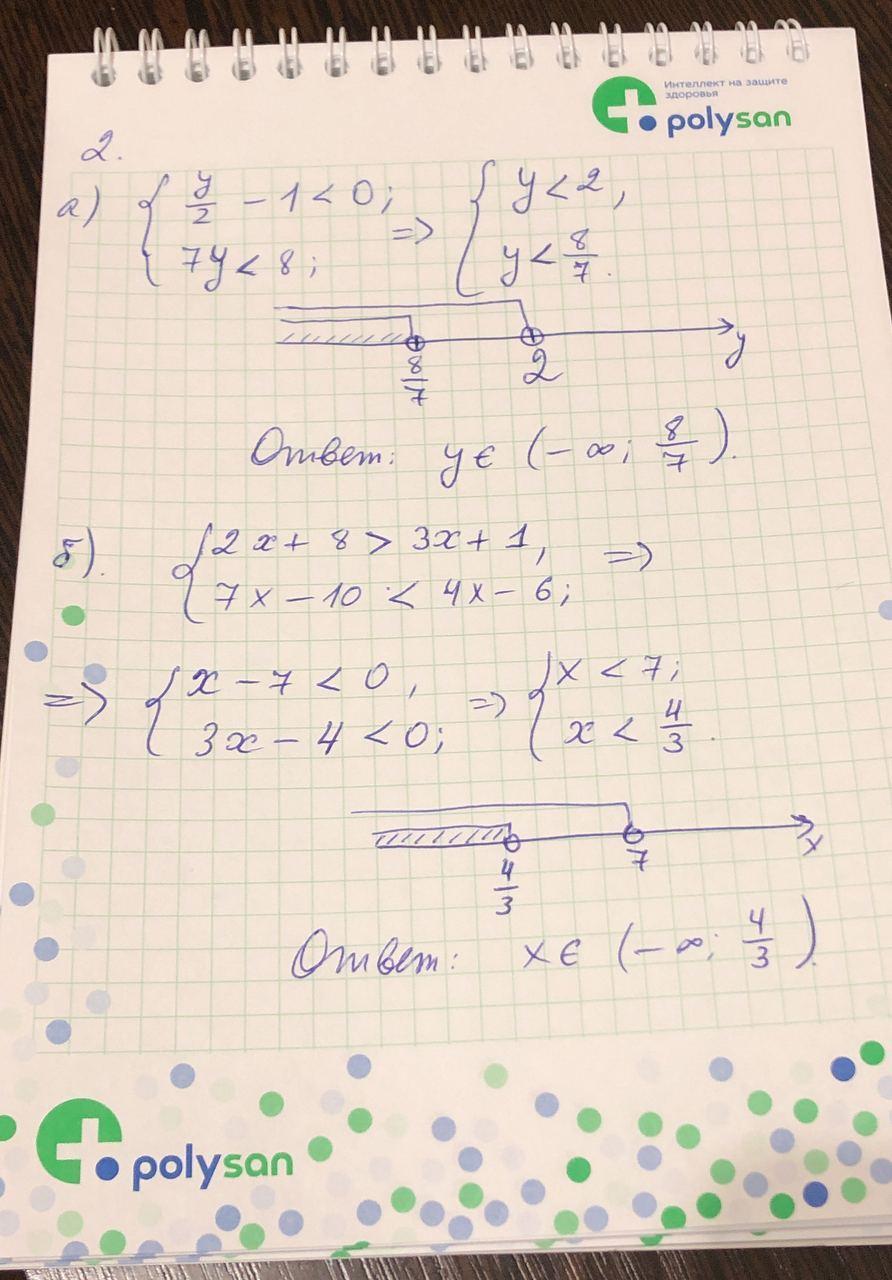 Интеллект на защите
здоровья
polysan
2.
а) { y/2 - 1 < 0; => { y < 2,
7y < 8; y < 8/7.
8/7 2 y
Ответ: y ∈ (-∞; 8/7).
б). { 2x + 8 > 3x + 1, =>
7x - 10 < 4x - 6;
=> { x - 7 < 0, => { x < 7;
3x - 4 < 0; x < 4/3.
4/3 7 x
Ответ: x ∈ (-∞; 4/3).
polysan